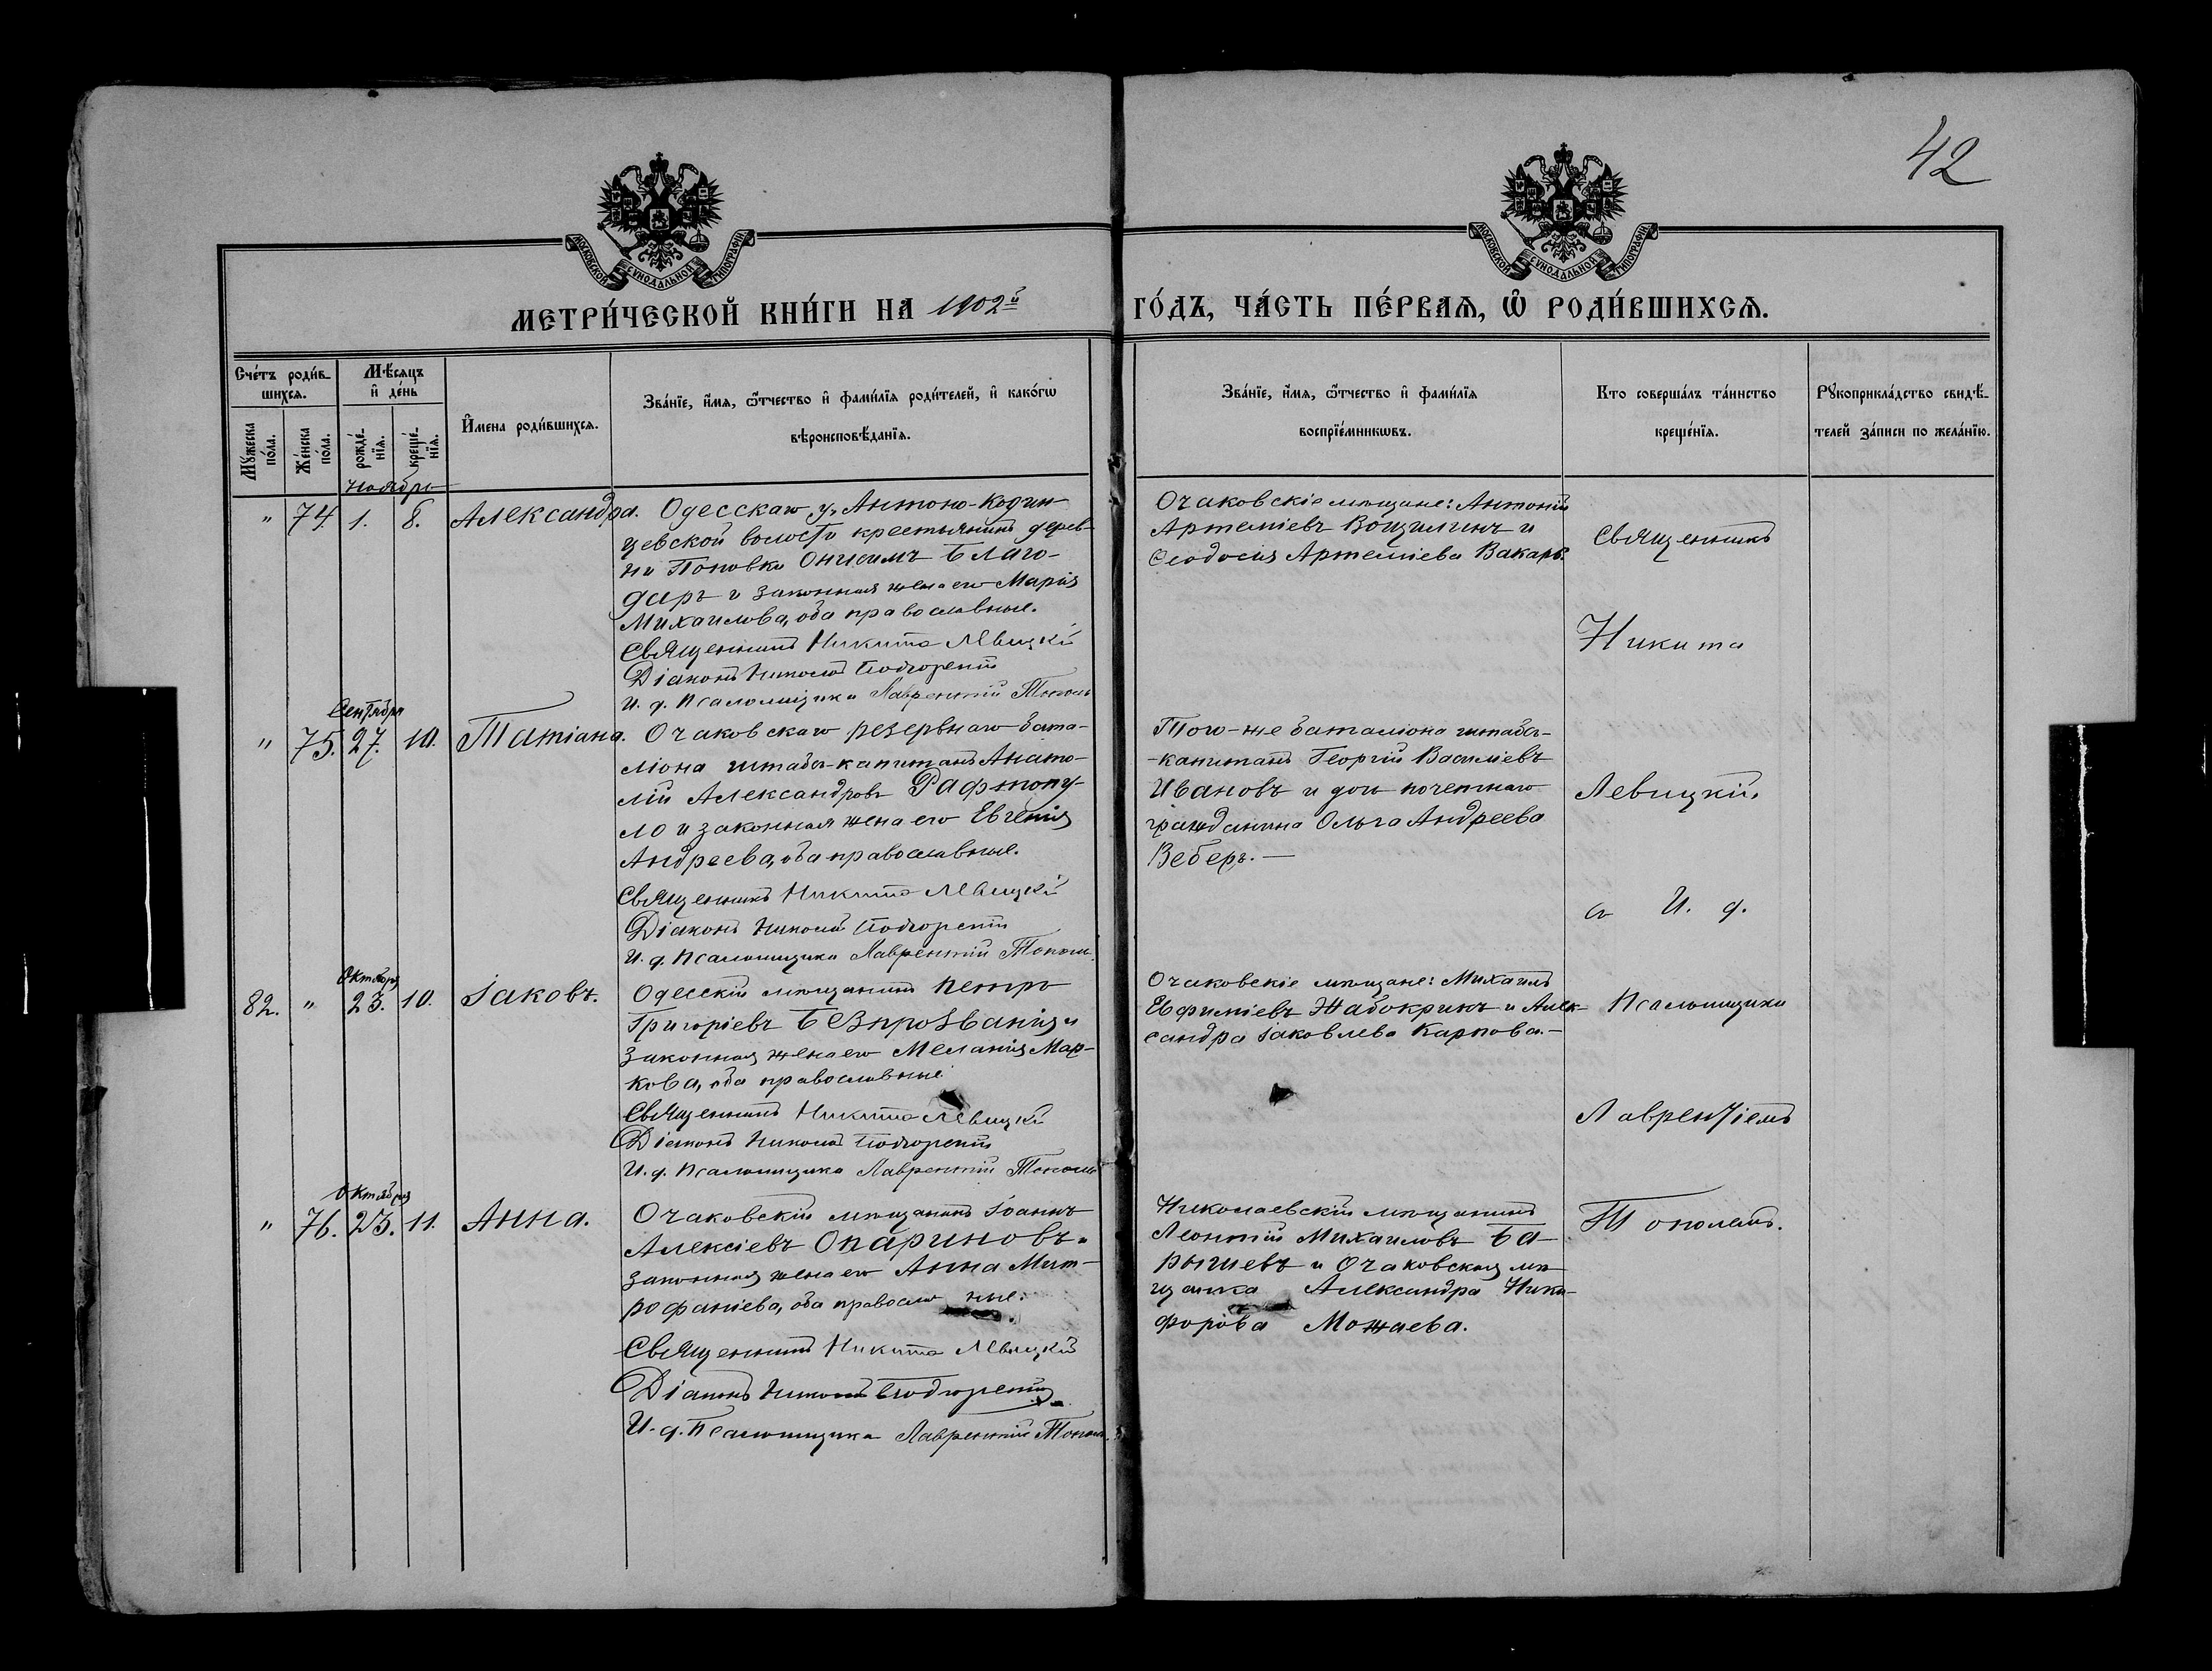 42
МОСКОВСКОЙ СѴНОДАЛЬНОЙ ТИПОГРАФІИ
МОСКОВСКОЙ СѴНОДАЛЬНОЙ ТИПОГРАФІИ
МЕТРИ́ЧЕСКОЙ КНИ́ГИ НА 1902й ГО́ДЪ, ЧА́СТЬ ПЕ́РВАѦ, Ѡ҆ РОДИ́ВШИХСѦ.
Сче́тъ роди́в-
шихсѧ.
Мѣ́сѧцъ
и҆ де́нь
Мꙋ́жеска
по́ла.
Же́нска
по́ла.
рожде́-
нїѧ.
креще́-
нїѧ.
И҆мена роди́вшихсѧ.
Зва́нїе, и҆́мѧ, ѻ҆́тчество и҆ фами́лїѧ роди́телей, и҆ како́гѡ
вѣроисповѣ́данїѧ.
Зва́нїе, и҆́мѧ, ѻ҆́тчество и҆ фами́лїѧ
воспрїе́мникѡвъ.
Кто соверша́лъ та́инство
креще́нїѧ.
Рꙋкоприкла́дство свидѣ́-
телей за́писи по жела́нїю.
Ноябрь
" 74. 1. 8. Александра.
Одесскаго у. Антоно-Кодин-
цевской волости крестьянинъ дерев-
ни Поповки Онисимъ Благо-
даръ и законная жена его Марія
Михаилова, оба православные.
Священникъ Никита Левицкій
Діаконъ Николай Подгорецкій
И. д. Псаломщика Лаврентій Тополь
Очаковскіе мѣщане: Антоній
Артеміевъ Вощилинъ и
Ѳеодосія Артеміева Вакаръ.
Священникъ
Никита
Сентября
" 75. 27. 10. Татіана.
Очаковскаго резервнаго бата-
ліона штабсъ-капитанъ Анато-
лій Александровъ Рафтопу-
ло и законная жена его Евгенія
Андреева, оба православные.
Священникъ Никита Левицкій
Діаконъ Николай Подгорецкій
И. д. Псаломщика Лаврентій Тополь.
Того-же баталіона штабсъ-
-капитанъ Георгій Василіевъ
Ивановъ и дочь почетнаго
гражданина Ольга Андреева
Веберъ.—
Левицкій,
съ И. д.
Октября
82. " 23. 10. Іаковъ.
Одесскій мѣщанинъ Петръ
Григоріевъ Безпрозваній и
законная жена его Меланія Мар-
кова, оба православные
Священникъ Никита Левицкій
Діаконъ Николай Подгорецкій
И. д. Псаломщика Лаврентій Тополь
Очаковскіе мѣщане: Михаилъ
Евфиміевъ Жабокрикъ и Алек-
сандра Іаковлева Карпова.—
Псаломщика
Лаврентіемъ
Октября
" 76. 23. 11. Анна.
Очаковскій мѣщанинъ Іоаннъ
Алексіевъ Опариновъ и
законная жена его Анна Мит-
рофаніева, оба православные.
Священникъ Никита Левицкій
Діаконъ Николай Подгорецкій
И. д. Псаломщика Лаврентій Тополь.
Николаевскій мѣщанинъ
Леонтій Михаиловъ Ба-
рышевъ и Очаковская мѣ-
щанка Александра Ники-
форова Можаева.
Тополемъ.